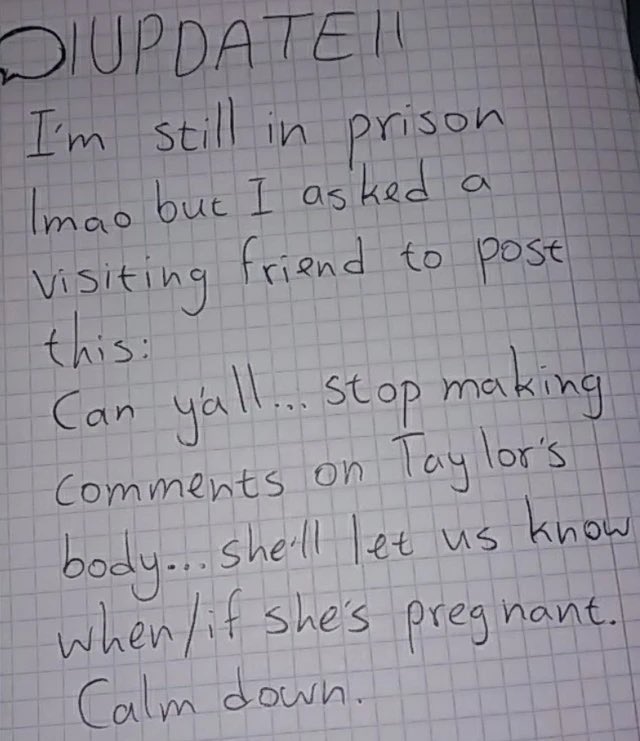 UPDATE!!
I'm still in prison
lmao but I asked a
visiting friend to post
this:
Can y'all... stop making
comments on Taylor's
body... she'll let us know
when/if she's pregnant.
Calm down.